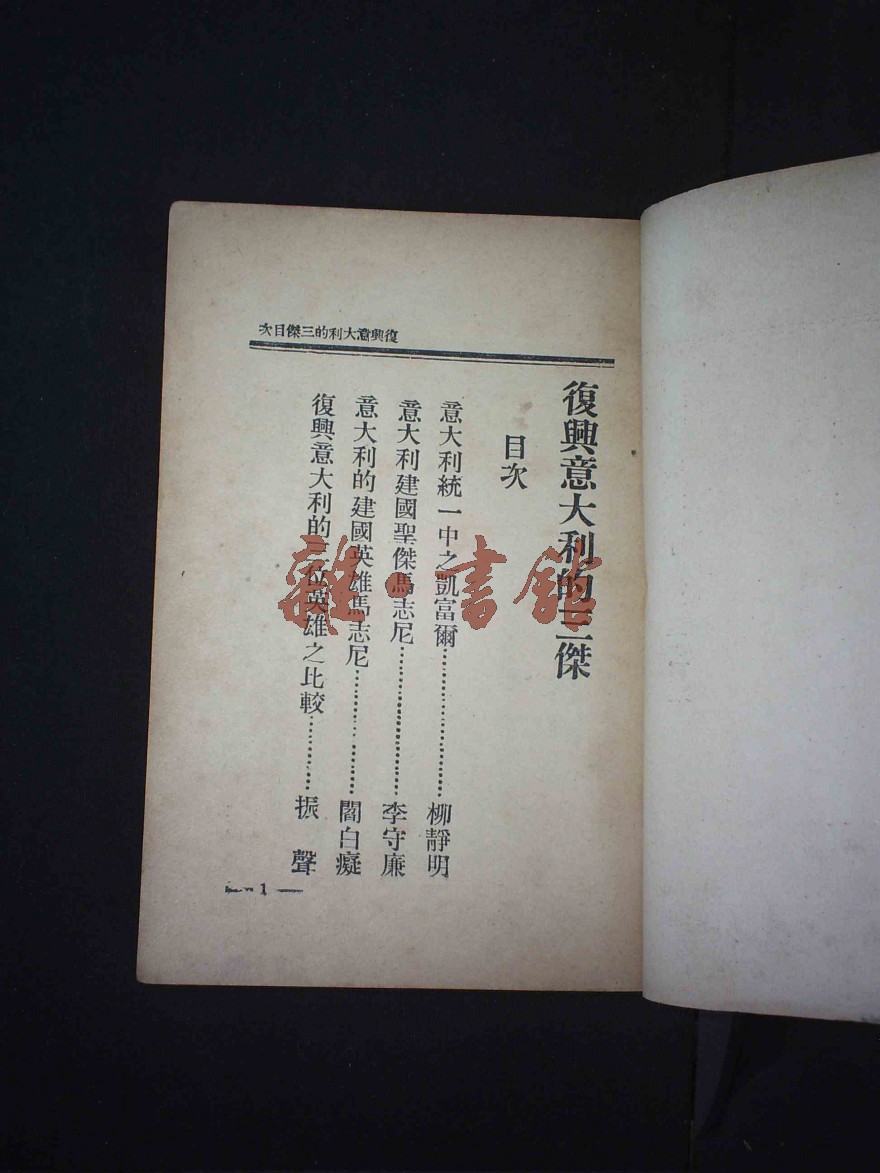 復興意大利的三傑目次
復興意大利的三傑
目次
意大利統一中之凱富爾……………………柳靜明
意大利建國聖傑馬志尼……………………李守廉
意大利的建國英雄馬志尼…………………閻白癡
復興意大利的三位英雄之比較……………振聲
— 1 —
雜·書館